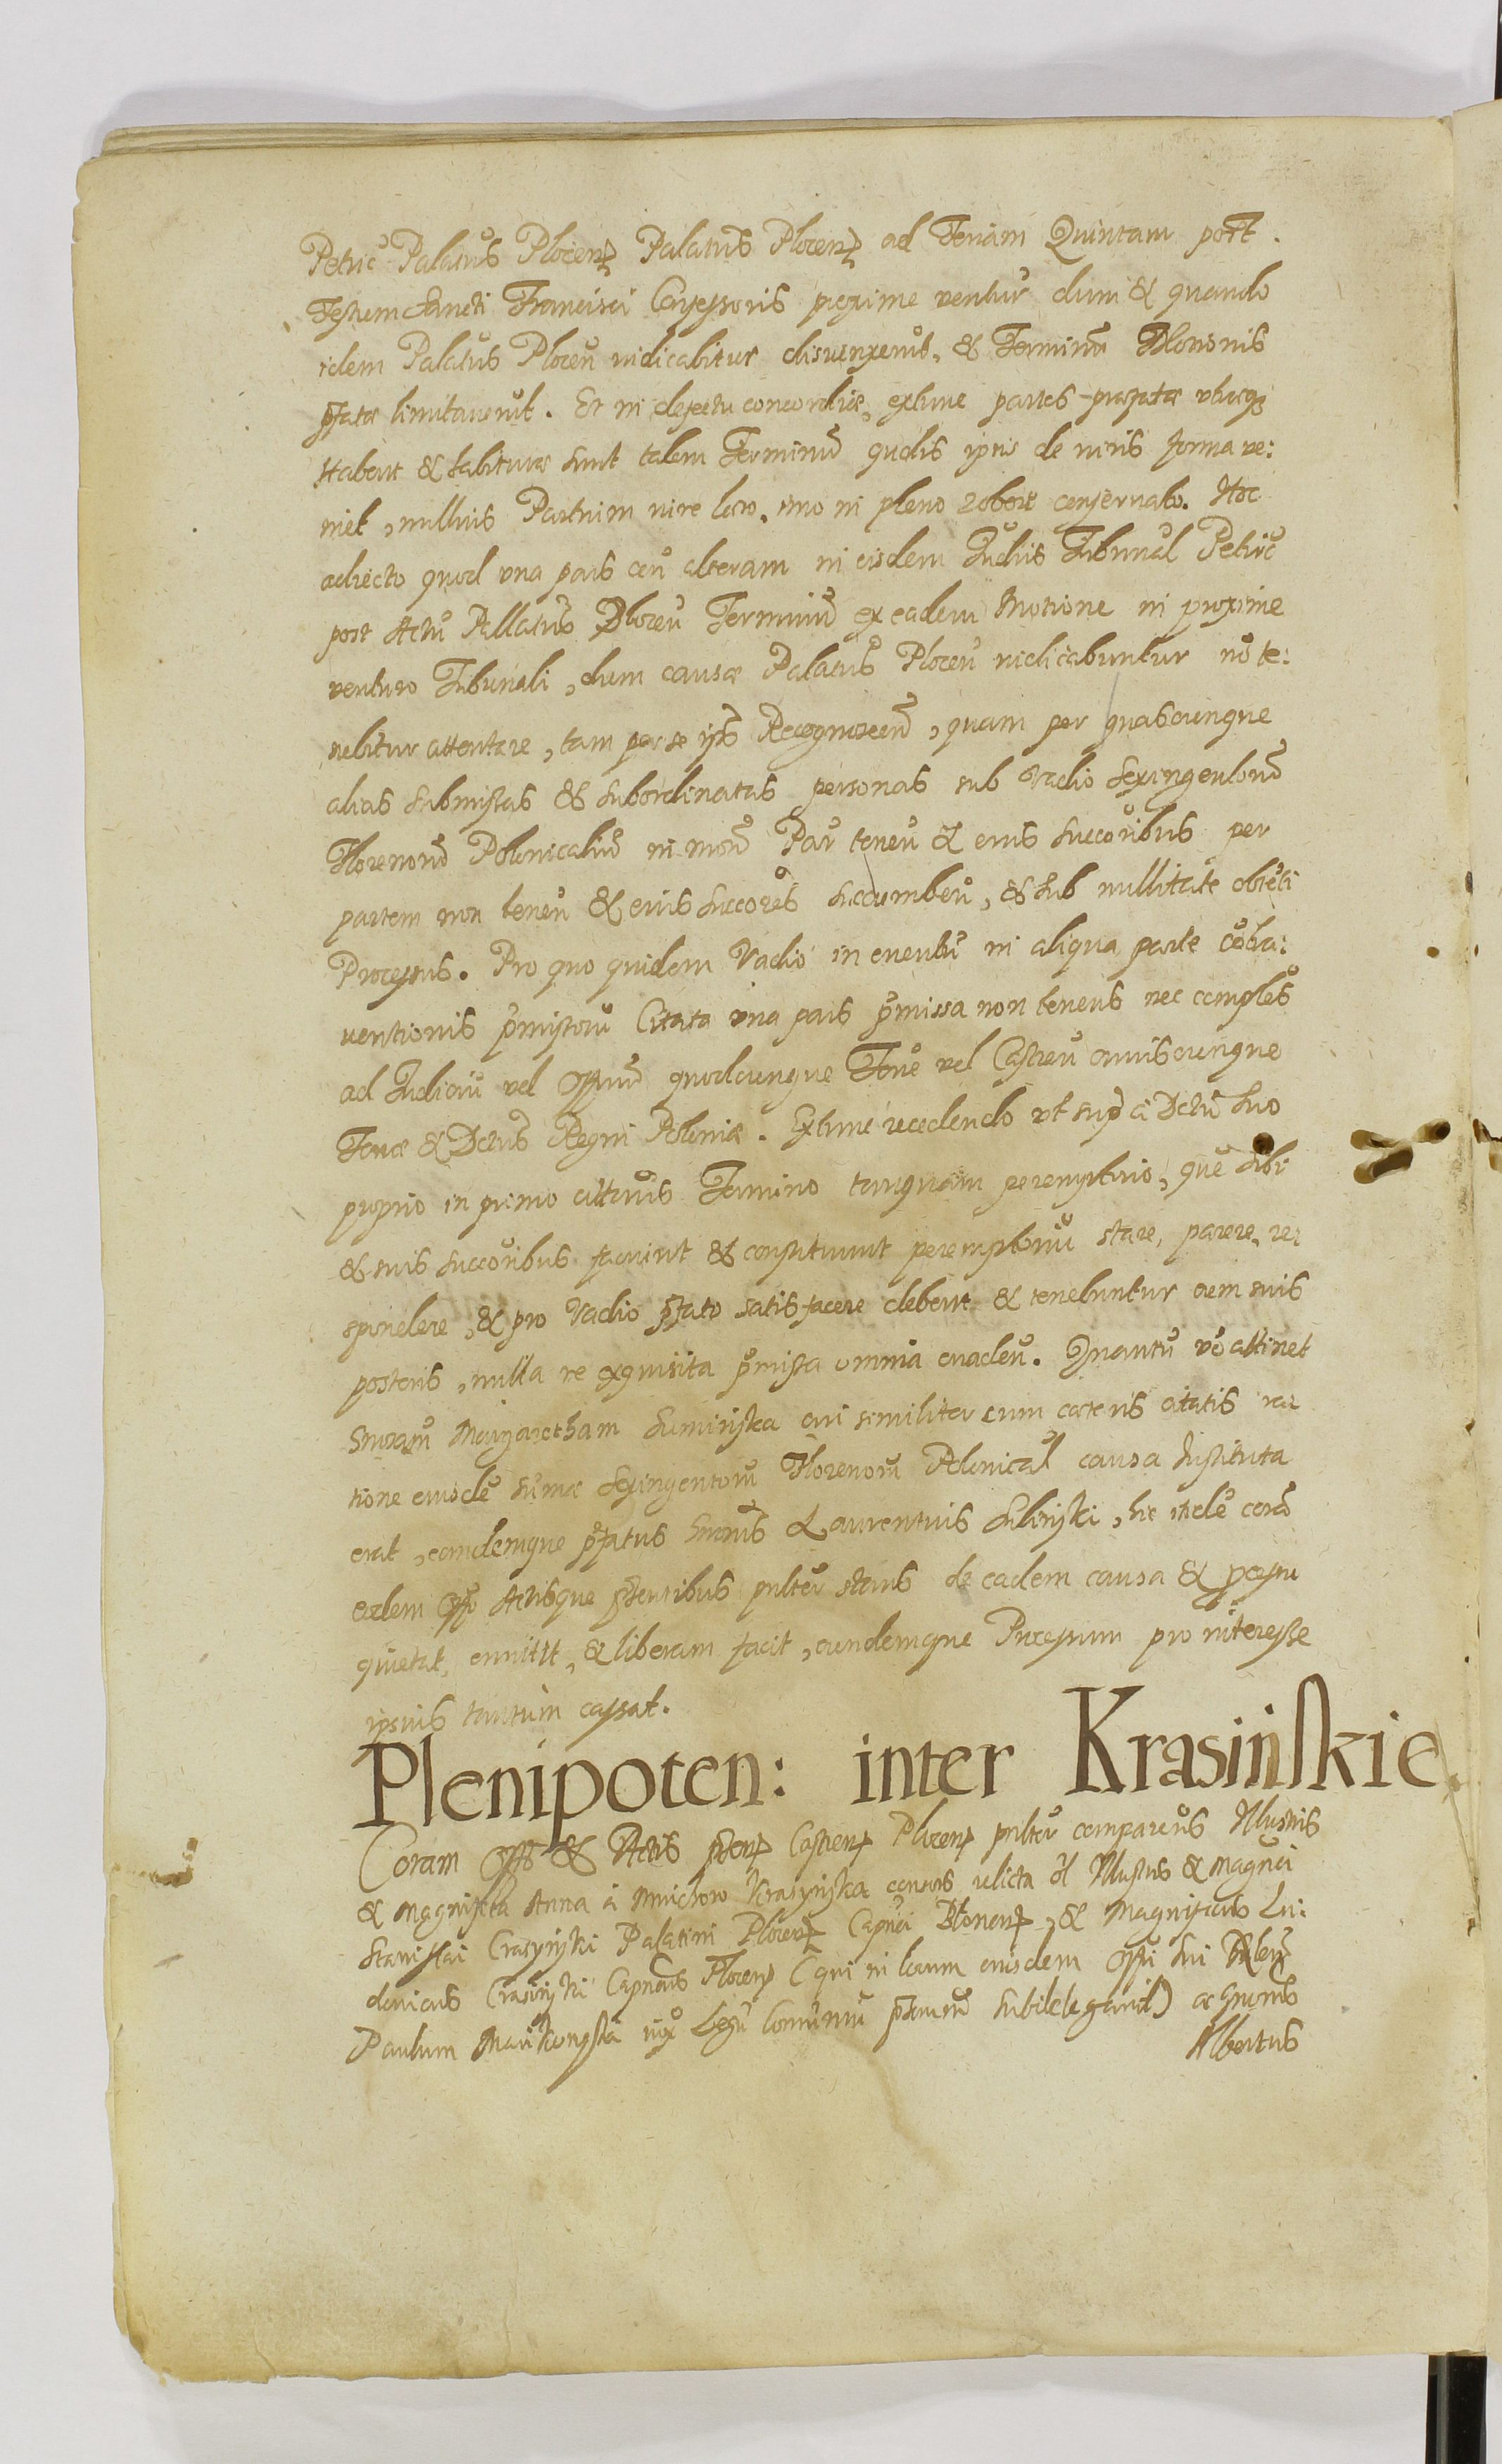 Petric Palatus Plocen Palatus Plocen ad Feriam Quintam post
Festum Sancti Francisci Confessoris proxime ventur dum & quando
idem Palatus Plocen iudicabitur & Terminum Motionis
pfatae limitaverut. Et in defectu concordiae, extunc partes praefatae
Habent & habiturae sunt talem Terminum qualis ipsis de iuris forma ve:
niet, nullius Partium iure laeso, imo in pleno robore conservato. Hoc
adiecto quod una pars alteram in eisdem Iudiis Tribunal Petric
post Actu Pallatus Plocen Terminum ex eadem Motione in proxime
venturo Tribunali, dum causae Palatus Plocen iudicabuntur no te:
nebitur attentare, tam per se ipsos Recognoscen, quam per quascunque
alias submissas & subordinatas personas sub Vadio Sexingentorum
Florenorum Polonicalium in mon Par tenen & eius succoribus per
partem non tenen & eius succores succumben, & sub nullitate
Processus. Pro quo quidem Vadio in eventu in aliqua parte cotra:
ventionis pmissoru Citata una pars pmissa non tenens nec comples
ad Iudiciu vel Offium quodcunque Tere vel Castren cuiuscunque
Terrae & Dctus Regni Poloniae. Extunc recedendo ut sup a Dctu suo
proprio in primo citationis Termino tanquam peremptorio, que sibi
& suis succoribus faciunt & constituunt peremptoriu stare, parere, re:
spondere, & pro Vadio pfato satisfacere debent & tenebuntur cum suis
posteris, nulla re exquisita pmissa omnia evaden. Quantu vo attinet
Margaretham Suminska cui similiter cum caeteris citatis ra
tione eiusde sumae Sexingentoru Florenoru Polonical causa Instituta
erat, eamdemque pfatus Laurentius Sulinski, hic itide cora
eodem Offo Actisque pntibus psnlter stans de eadem causa & pcessu
quietat, emittit, & liberam facit, eundemque Processum pro interesse
ipsius tantum cassat.
Plenipoten: inter Krasinskie
Coram Offo & Actis pnten Castren Plocen psnlter comparens Illustris
& Magnifica Anna a Mnichow Krasynska consors relicta Illustris & Magnifici
Stanislai Crasynski Palatini Plocen Capnei & Magnificus Lu:
dovicus Crasinski Capneus Plocen (qui in locum eiusdem Offi sui
Paulum iux Legu Comuniu subdelegavit) ac
Albertus